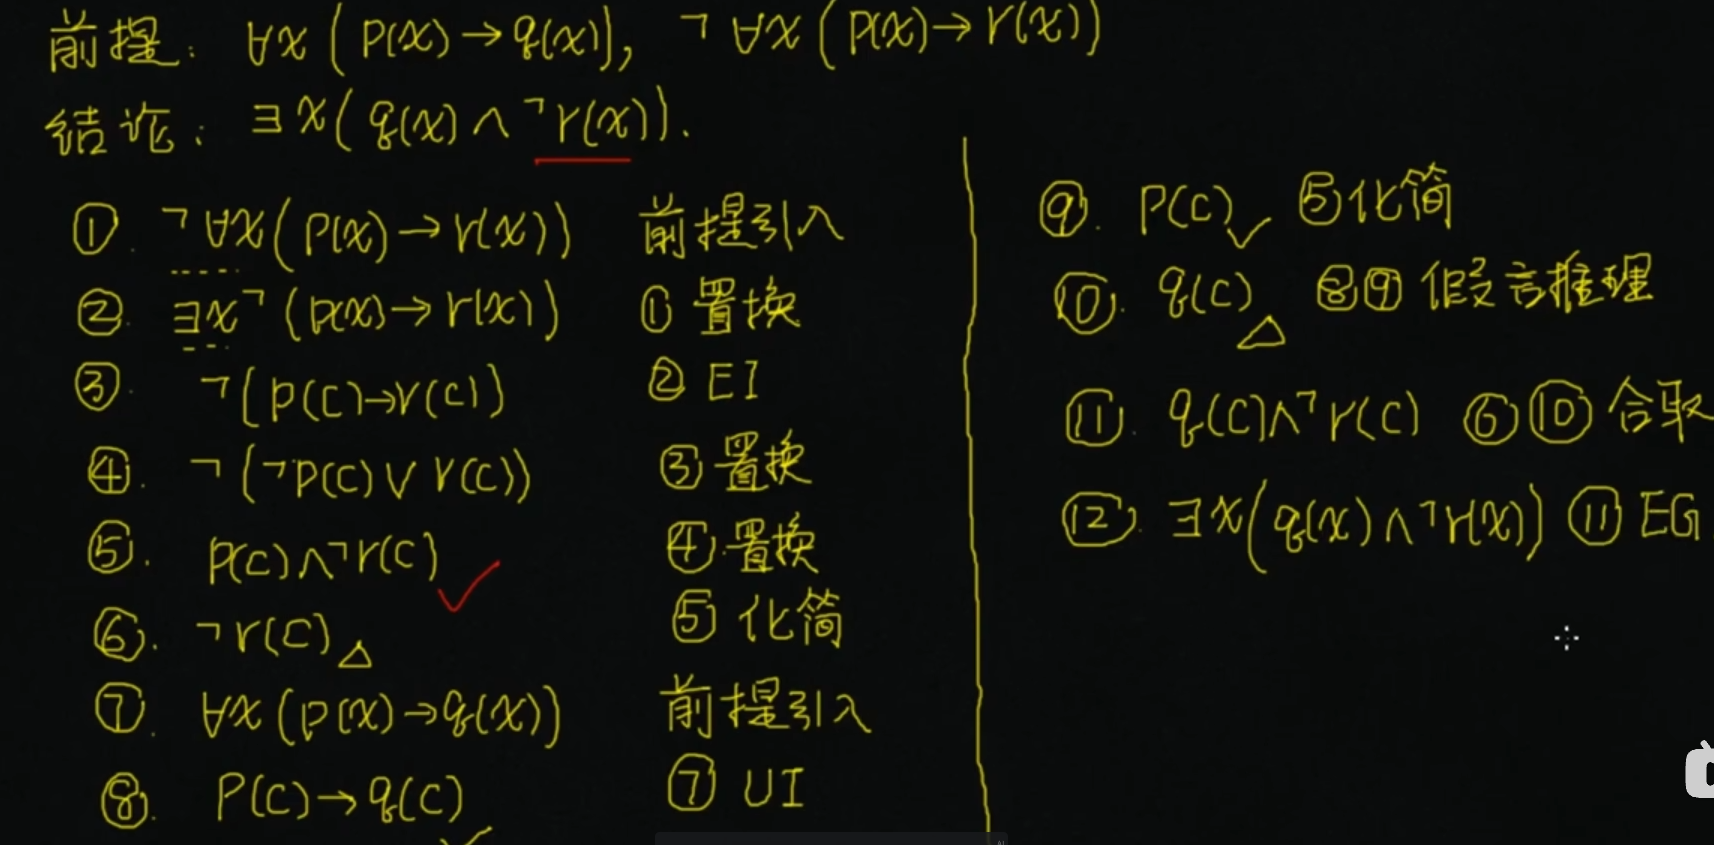 前提: ∀x(P(x)→q(x)), ¬∀x(P(x)→r(x))
结论: ∃x(q(x)∧¬r(x)).
① ¬∀x(P(x)→r(x)) 前提引入
② ∃x¬(P(x)→r(x)) ①置换
③. ¬(P(c)→r(c)) ② EI
④. ¬(¬P(c)∨r(c)) ③置换
⑤. P(c)∧¬r(c) ④置换
⑥. ¬r(c) △ ⑤化简
⑦. ∀x(P(x)→q(x)) 前提引入
⑧. P(c)→q(c) ⑦ UI
⑨. P(c) ⑤化简
⑩. q(c) △ ⑧⑨ 假言推理
⑪. q(c)∧¬r(c) ⑥⑩ 合取
⑫. ∃x(q(x)∧¬r(x)) ⑪ EG